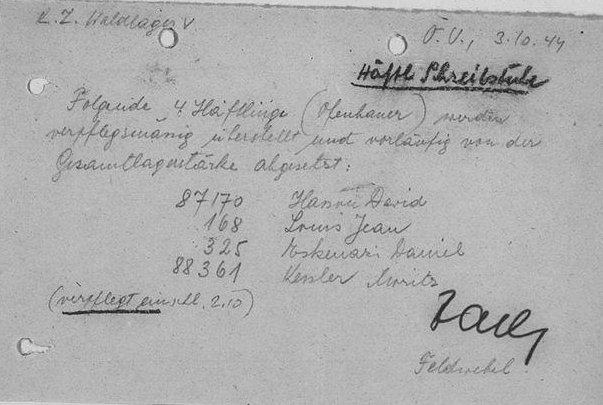 K. Z. Waldlager V
O. U., 3.10.44
Häftl. Schreibstube
Folgende 4 Häftlinge (Ofenbauer) werden
verpflegsmäßig überstellt und vorläufig von der
Gesamtlagerstärke abgesetzt:
87170 Hasson David
168 Louis Jean
325 Eskenazi Daniel
88361 Kessler Moritz
(verpflegt einschl. 2.10)
Feldwebel